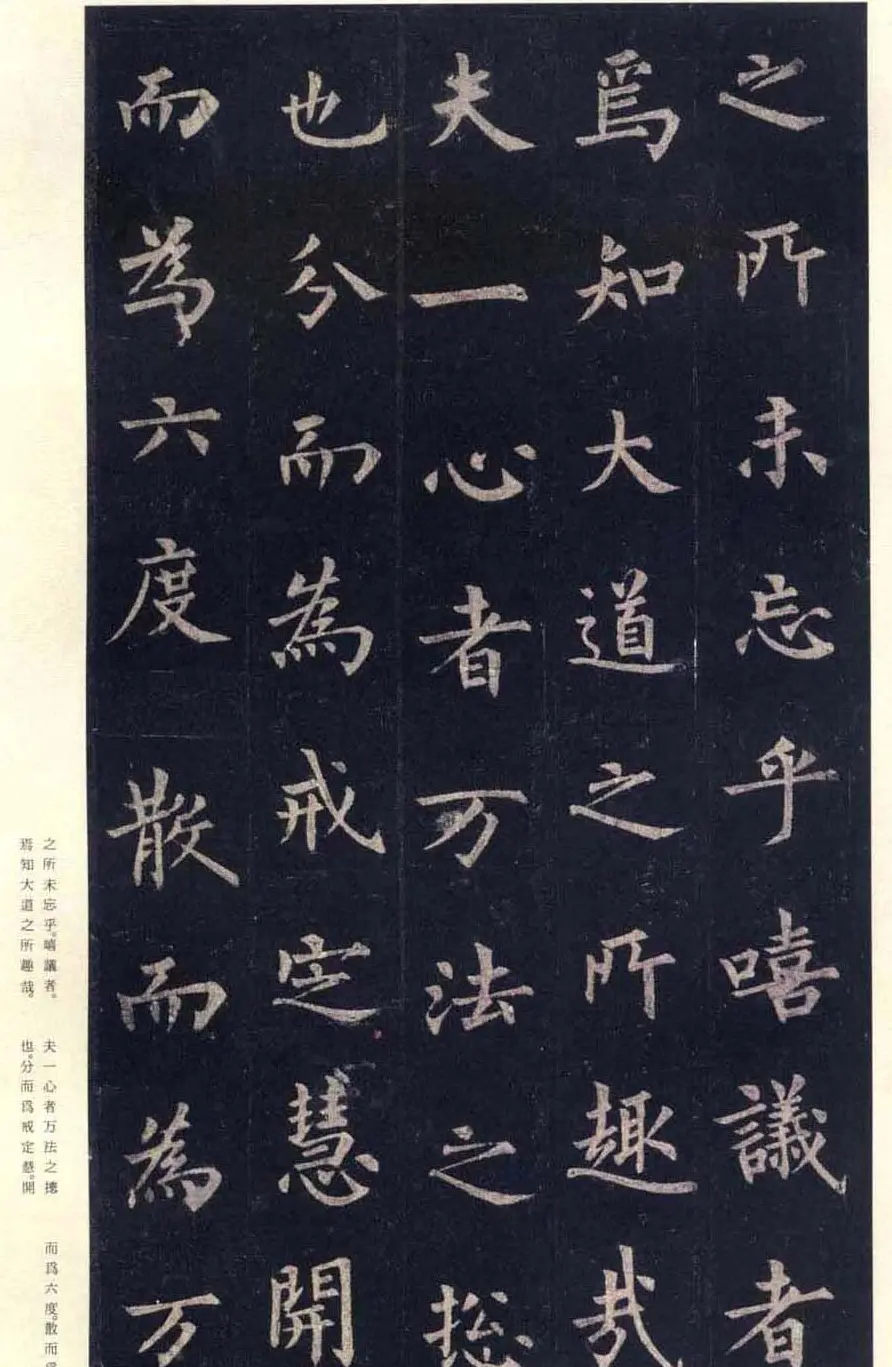 之所未忘乎嘻議者
焉知大道之所趣哉
夫一心者万法之総
也分而為戒定慧開
而為六度散而為万
之所未忘乎。嘻議者。
焉知大道之所趣哉。
夫一心者万法之摠
也。分而爲戒定慧。開
而爲六度。散而爲